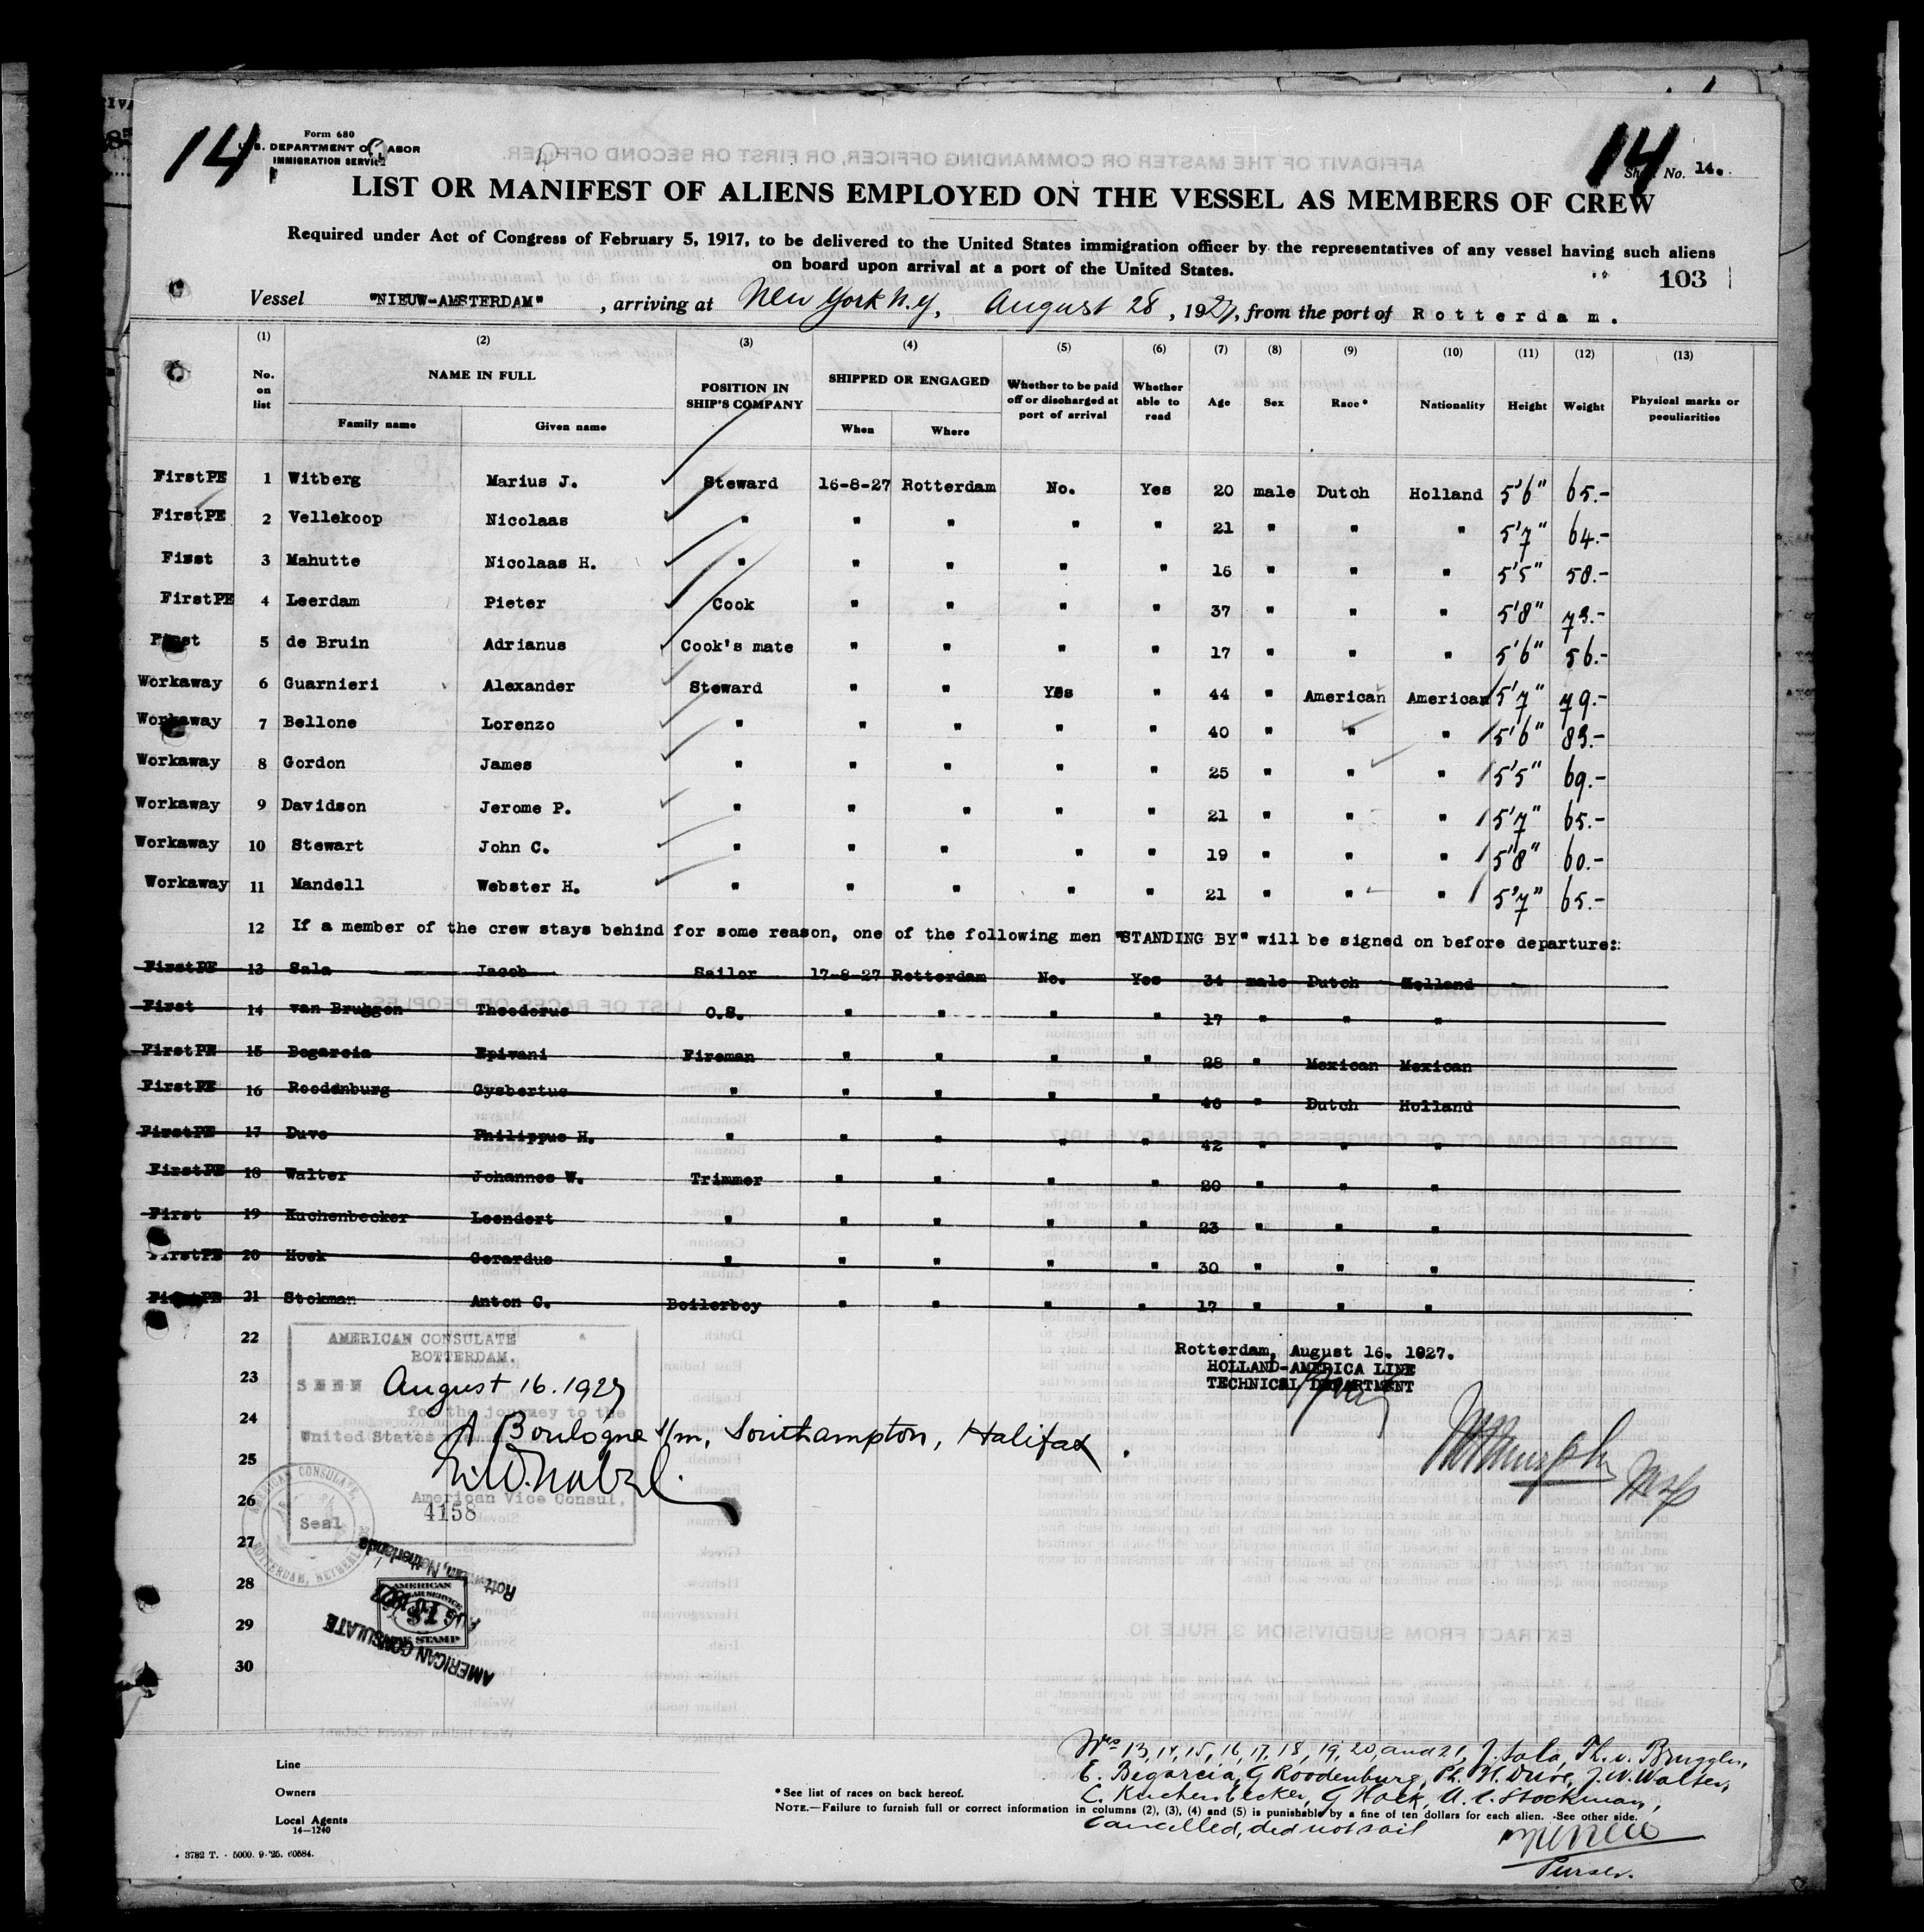 14
Form 680
U.S. DEPARTMENT OF LABOR
IMMIGRATION SERVICE
14
Sheet No. 14.
LIST OR MANIFEST OF ALIENS EMPLOYED ON THE VESSEL AS MEMBERS OF CREW
Required under Act of Congress of February 5, 1917, to be delivered to the United States immigration officer by the representatives of any vessel having such aliens
on board upon arrival at a port of the United States.
103
Vessel "NIEUW-AMSTERDAM" , arriving at New York N.Y., August 28 , 1927, from the port of Rotterdam.
(1) (2) (3) (4) (5) (6) (7) (8) (9) (10) (11) (12) (13)
No. on list NAME IN FULL POSITION IN SHIP'S COMPANY SHIPPED OR ENGAGED Whether to be paid off or discharged at port of arrival Whether able to read Age Sex Race* Nationality Height Weight Physical marks or peculiarities
Family name Given name When Where
FirstPE 1 Witberg Marius J. Steward 16-8-27 Rotterdam No. Yes 20 male Dutch Holland 5'6" 65.-
FirstPE 2 Vellekoop Nicolaas " " " " " 21 " " " 5'7" 64.-
First 3 Mahutte Nicolaas H. " " " " " 16 " " " 5'5" 58.-
FirstPE 4 Leerdam Pieter Cook " " " " 37 " " " 5'8" 73.-
First 5 de Bruin Adrianus Cook's mate " " " " 17 " " " 5'6" 56.-
Workaway 6 Guarnieri Alexander Steward " " Yes " 44 " American American 5'7" 79.-
Workaway 7 Bellone Lorenzo " " " " " 40 " " " 5'6" 83.-
Workaway 8 Gordon James " " " " " 25 " " " 5'5" 69.-
Workaway 9 Davidson Jerome P. " " " " " 21 " " " 5'7" 65.-
Workaway 10 Stewart John C. " " " " " 19 " " " 5'8" 60.-
Workaway 11 Mandell Webster H. " " " " " 21 " " " 5'7" 65.-
12 If a member of the crew stays behind for some reason, one of the following men "STANDING BY" will be signed on before departure:
FirstPE 13 Sala Jacob Sailor 17-8-27 Rotterdam No. Yes 34 male Dutch Holland
First 14 van Bruggen Theodorus O.S. " " " " 17 " " "
FirstPE 15 Begarcia Epivani Fireman " " " " 28 " Mexican Mexican
FirstPE 16 Roodenburg Gysbertus " " " " " 46 " Dutch Holland
FirstPE 17 Duve Philippus H. " " " " " 42 " " "
FirstPE 18 Walter Johannes W. Trimmer " " " " 20 " " "
First 19 Kuchenbecker Leendert " " " " " 23 " " "
FirstPE 20 Hoek Gerardus " " " " " 30 " " "
FirstPE 21 Stokman Anton C. Boilerboy " " " " 17 " " "
22
AMERICAN CONSULATE
ROTTERDAM.
Rotterdam, August 16. 1927.
HOLLAND-AMERICA LINE
TECHNICAL DEPARTMENT
23
SEEN August 16. 1927
for the journey to the
24
United States
Boulogne s/m, Southampton, Halifax.
25
26
American Vice Consul.
4158
AMERICAN CONSULATE,
ROTTERDAM, NETHERLANDS
Seal
27
Rotterdam, Netherlands
28
AMERICAN
STAMP
AMERICAN CONSULATE
29
30
Nos 13, 14, 15, 16, 17, 18, 19, 20, and 21, J. Sala, Th. v. Bruggen,
E. Begarcia, G Roodenburg, Ph. H. Duve, J. W. Walter,
L. Kuchenbecker, G Hoek, A. C. Stockman,
cancelled, did not sail
Purser.
Line
Owners
Local Agents
14—1240
* See list of races on back hereof.
NOTE.—Failure to furnish full or correct information in columns (2), (3), (4) and (5) is punishable by a fine of ten dollars for each alien. See other side.
3782 T. - 5000. 9-'25. 60584.